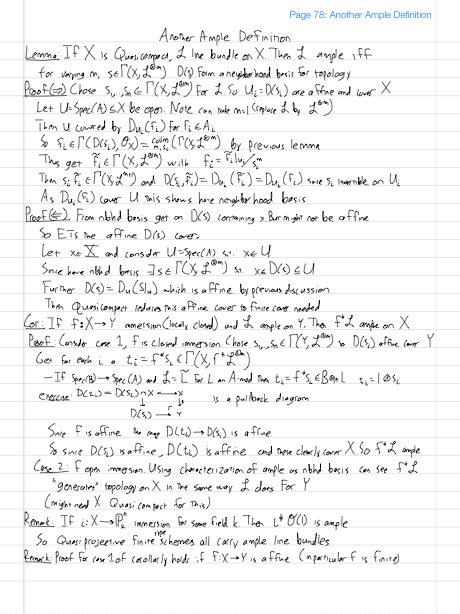 Page 78: Another Ample Definition
Another Ample Definition
Lemma: If X is Quasicompact, L line bundle on X. Then L ample iff
for varying m, s∈Γ(X, L^⊗m) D(s) form a neighborhood basis for topology
Proof(⇒) Chose s₁,...,sₙ ∈ Γ(X, L^⊗m) for L. So Uᵢ = D(sᵢ) are affine and cover X
Let U=Spec(A) ⊆ X be open. Note can take m=1 (replace L by L^⊗m)
Then U covered by D_Uᵢ(fᵢ) for fᵢ ∈ Aᵢ
So fᵢ ∈ Γ(D(sᵢ), O_X) = colim_m,sᵢ (Γ(X, L^⊗m)) by previous lemma
Thus get f̃ᵢ ∈ Γ(X, L^⊗m) with fᵢ = f̃ᵢ|_Uᵢ/sᵢ^m
Then sᵢ f̃ᵢ ∈ Γ(X, L^m+1) and D(sᵢ f̃ᵢ) = D_Uᵢ(f̃ᵢ) = D_Uᵢ(fᵢ) since sᵢ invertible on Uᵢ
As D_Uᵢ(fᵢ) cover U this shows have neighborhood basis
Proof(⇐). From nbhd basis get an D(s) containing x But might not be affine
So ETS the affine D(s) cover.
Let x∈X and consider U=Spec(A) s.t. x∈U
Since have nbhd basis ∃ s∈Γ(X, L^⊗m) st. x∈D(s)⊆U
Further D(s) = D_U(s|_U) which is affine by previous discussion
Then Quasicompact reduces this affine cover to finite cover needed
Cor: If f: X→Y immersion (locally closed) and L ample on Y. Then f*L ample on X
Proof: Consider case 1, f is closed immersion Chose s₁,...,sₙ ∈ Γ(Y, L^⊗m) so D(sᵢ) affine cover Y
Get for each i a tᵢ = f*sᵢ ∈ Γ(X, f*L^⊗m)
- If Spec(B) → Spec(A) and L = L̃ for L an A-mod then tᵢ = f*sᵢ ∈ B⊗_A L tᵢ = 1⊗sᵢ
exercise: D(tᵢ) = D(sᵢ)∩X → X
↓ ↓ is a pullback diagram
D(sᵢ) → Y
Since f is affine the map D(tᵢ) → D(sᵢ) is affine.
So since D(sᵢ) is affine, D(tᵢ) is affine and these clearly cover X So f*L ample
Case 2: f open immersion. Using characterization of ample as nbhd basis can see f*L
"generates" topology on X in the same way L does for Y
(might need X Quasicompact for this)
Remark: If i: X→ℙⁿ_k immersion for some field k. Then i*O(1) is ample
So Quasiprojective finite type schemes all carry ample line bundles
Remark: Proof for case 1 of corollary holds if f: X→Y is affine (in particular f is finite)